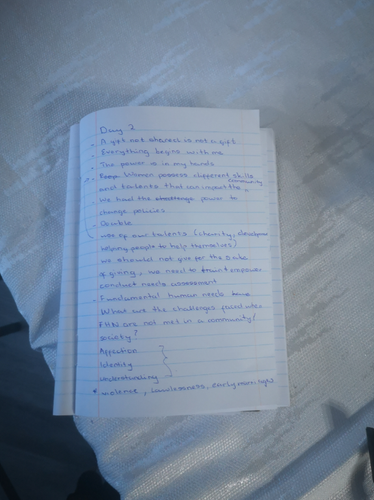 Day 2
- A gift not shared is not a gift
- Everything begins with me
- The power is in my hands
- Women possess different skills
and talents that can impact the community
We had the power to
change policies
-
use of our talents (charity, development
helping people to help themselves)
we should not give per the sake
of giving, we need to empower
conduct needs assessment
- Fundamental human needs
What are the challenges faced when
FHN are not met in a community/
society?
Affection
Identity
Understanding
* violence, lawlessness, early marriages